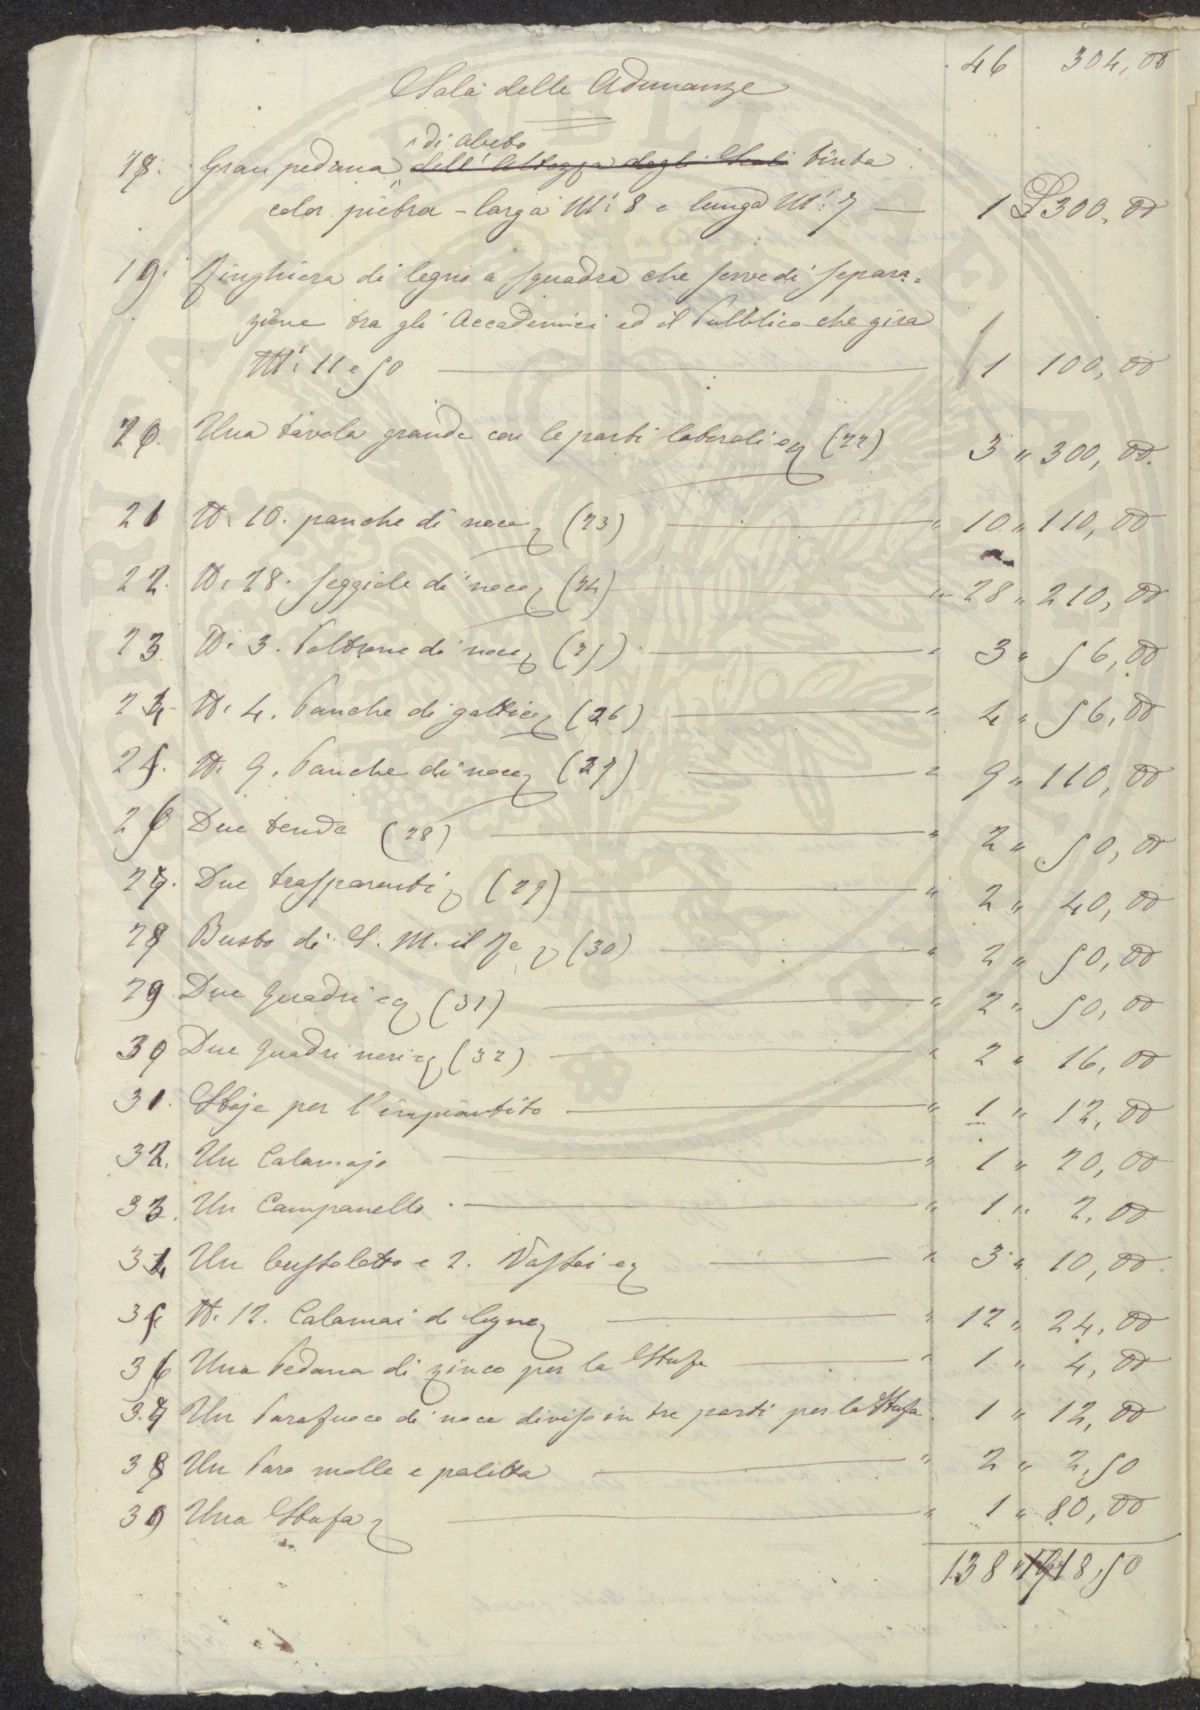 46 304,00
Sala delle Adunanze
di abeto
18. Gran pedana dell'altezza degli Scali tinta
color pietra - larga M.i 8 e lunga M.i 7 — 1 £ 300,00
19. Ringhiera di legno a squadra che serve di separa=
zione tra gli Accademici ed il Pubblico che gira
M.i 11 e 50 — 1 100,00
20. Una tavola grande con le parti laterali (22) 3 " 300,00
21 N. 10. panche di noce (23) — " 10 " 110,00
22. N. 28. seggiole di noce (24) — " 28 " 210,00
23 N. 3. Poltrone di noce (25) — " 3 " 56,00
24 N. 4. Panche di gattice (26) — " 4 " 56,00
25. N. 9. Panche di noce (27) — " 9 " 110,00
26 Due tende (28) — " 2 " 50,00
27. Due trasparenti (29) — " 2 " 40,00
28 Busto di S. M. il Re (30) — " 2 " 50,00
29 Due quadri (31) — " 2 " 50,00
30 Due quadri neri (32) — " 2 " 16,00
31. Stoje per l'impiantito — " 1 " 12,00
32. Un Calamajo — " 1 " 20,00
33. Un Campanello — " 1 " 2,00
34 Un bussoletto e 2. Vassoi — " 3 " 10,00
35 N. 12. Calamai di legno — " 12 " 24,00
36 Una Pedana di zinco per la Stufa — " 1 " 4,00
37 Un Parafuoco di noce diviso in tre parti per la Stufa. 1 " 12,00
38 Un Paro molle e paletta — " 2 " 2,50
39 Una Stufa — " 1 " 80,00
138 " 1918,50